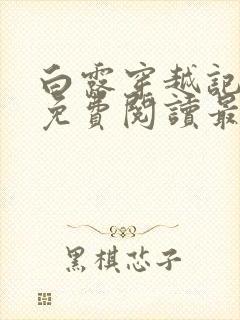 白露穿越記
免費閱讀最
黑棋芯子